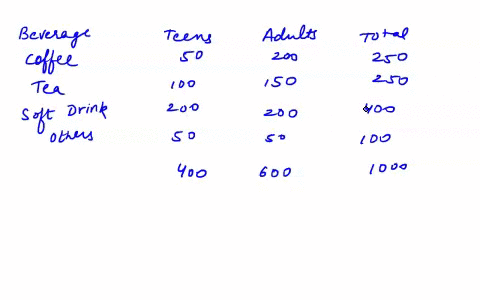 Beverage Teens Adults Total
Coffee 50 200 250
Tea 100 150 250
Soft Drink 200 200 400
Others 50 50 100
400 600 1000